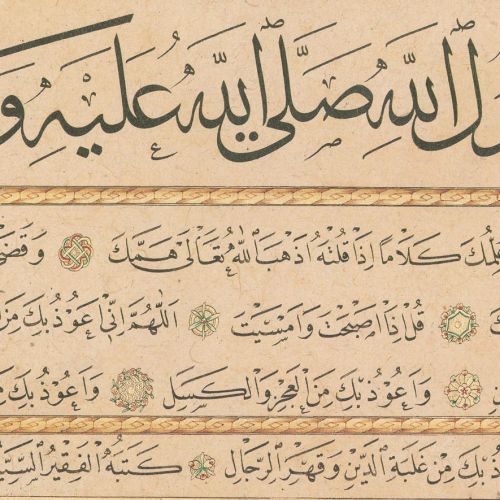 ل الله صلى الله عليه و
كلاما اذا قلته اذهب الله تعالى همك وقضى
قل اذا اصبحت وامسيت اللهم انى اعوذ بك من
واعوذ بك من العجز والكسل واعوذ بك من
بك من غلبة الدين وقهر الرجال كتبه الفقير السيد